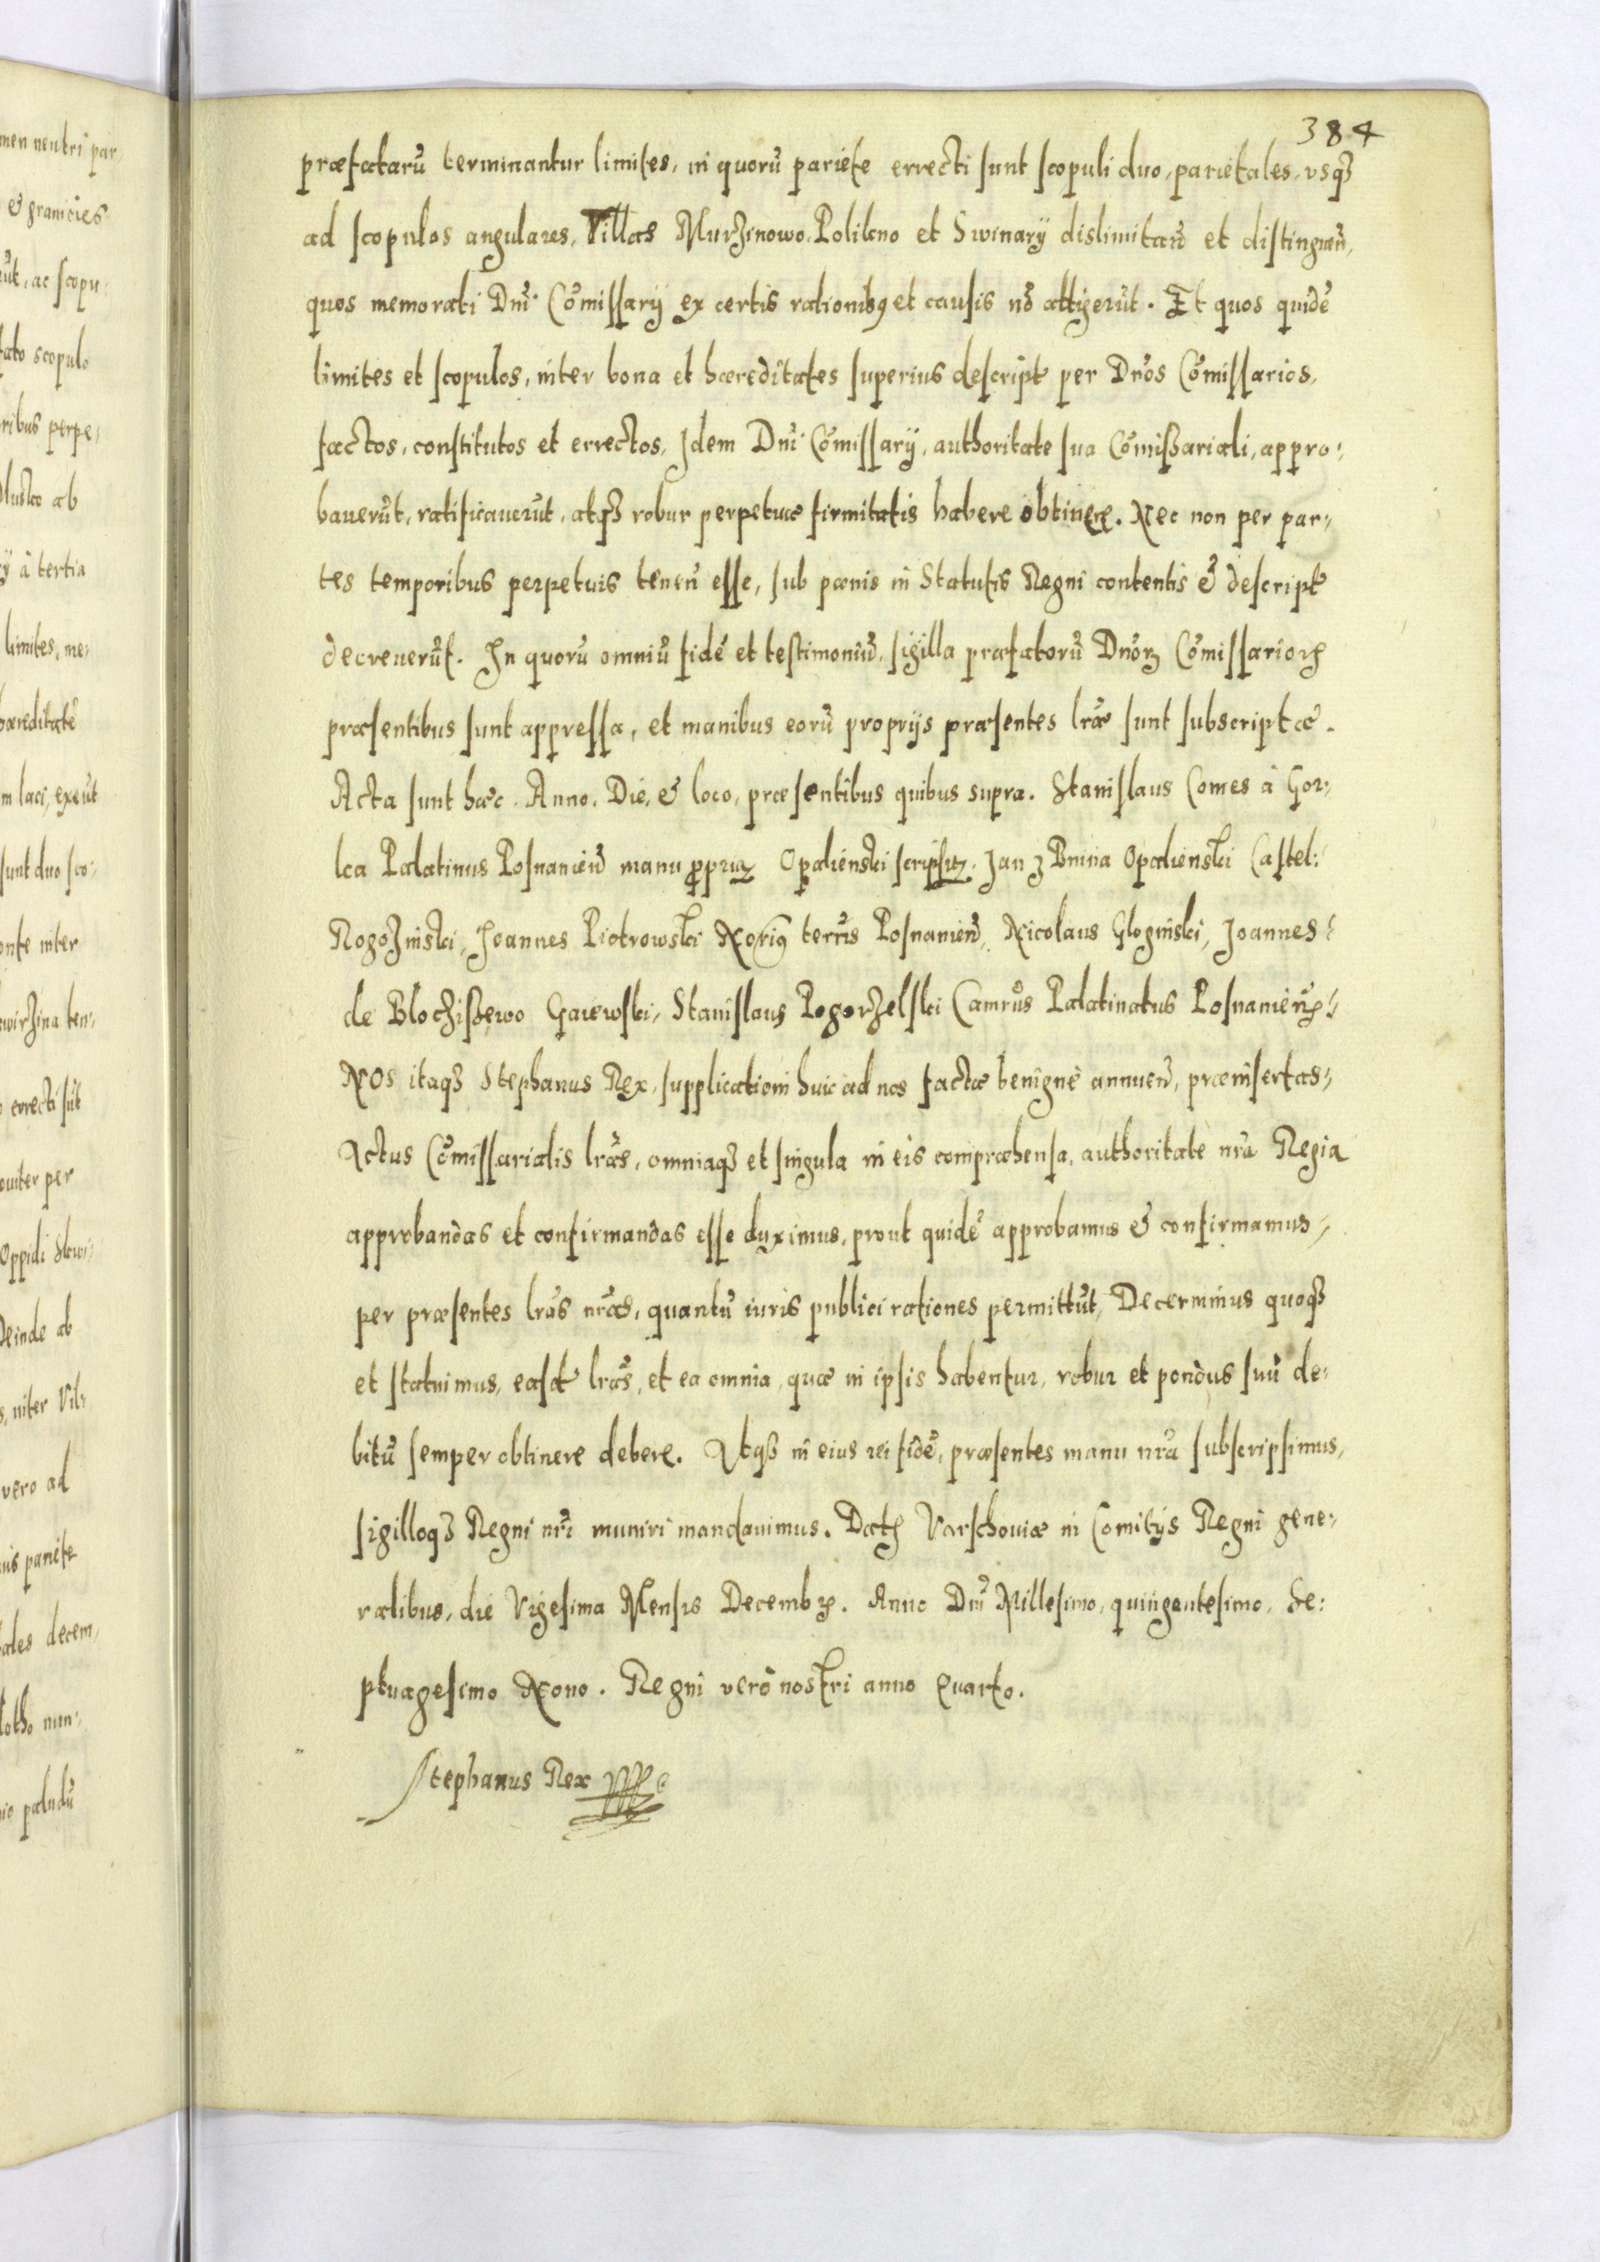 384
præfatarū terminantur limites, in quorū pariete errecti sunt scopuli duo, parietales, vsqȝ
ad scopulos angulares, Villas Murzinowo Polilono et Swinary dislimitan̄ et distinguen̄,
quos memorati Dnī Cōmissarÿ ex certis rationibꝰ et causis nō attigerūt. Et quos quidē
limites et scopulos, inter bona et hæreditates superius descript per Dnōs Cōmissarios,
factos, constitutos et errectos, Idem Dnī Cōmissarÿ, authoritate sua Cōmißariali, appro:
bauerūt, ratificauerūt, atqȝ robur perpetuæ firmitatis habere obtinere. Nec non per par:
tes temporibus perpetuis tenen̄ esse, sub pœnis in Statutis Regni contentis & descript
decreuerūt. In quorū omniū fidē et testimoniū, sigilla præfatorū Dnōrꝫ Cōmissarioꝝ
præsentibus sunt appressa, et manibus eorū proprijs præsentes lrǣ sunt subscriptæ.
Acta sunt hæc. Anno, Die, & loco, præsentibus quibus supra. Stanislaus Comes à Gor:
ka Palatinus Posnanien̄ manu ꝓpria Opalienski scripsit. Jan z Bnina Opalienski Castel:
Rogoziński, Joannes Piotrowski Noriꝰ terris Posnanien̄, Nicolaus Gloginski, Joannes
de Blociszewo Gaiewski, Stanislaus Pogorzelski Camrūs Palatinatus Posnanien̄
NOS itaqȝ Stephanus Rex, supplicationi huic ad nos factæ benignè annuen̄, præinsertas
Actus Cōmissarialis lrās, omniaqȝ et singula in eis compræhensa, authoritate nrā Regia
approbandas et confirmandas esse duximus, prout quidē approbamus & confirmamus
per præsentes lrās nrās, quantū iuris publici rationes permittūt, Decernimus quoqȝ
et statuimus, easdē lrās, et ea omnia, quæ in ipsis habentur, robur et pondus suū de:
bitū semper obtinere debere. Atqȝ in eius rei fidē, præsentes manu nrā subscripsimus,
sigilloqȝ Regni nrī muniri mandauimus. Datꝭ Varschouiæ in Comitÿs Regni gene:
ralibus, die Vigesima Mensis Decembꝝ. Anno Dnī Millesimo, quingentesimo, Se:
ptuagesimo Nono. Regni verò nostri anno Quarto.
Stephanus Rex